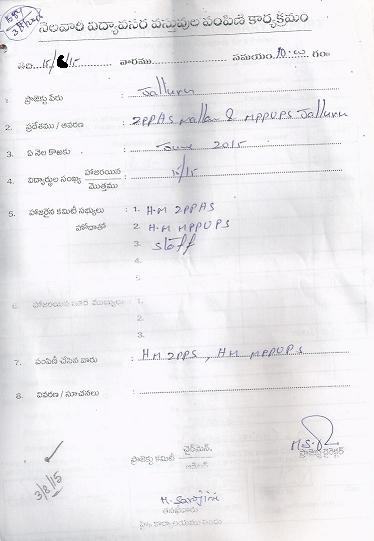 నెలవారి విద్యావసర వస్తువుల పంపిణీ కార్యక్రమం
తేది...15/6/15 వారము సమయం 10.00 గం
1. ప్రాజెక్టు పేరు : Jalluru
2. ప్రదేశము / ఆవరణ : ZPPAS & MPPUPS Jalluru
3. ఏ నెల కొఱకు : June 2015
4. విద్యార్థుల సంఖ్య హాజరయిన / మొత్తము : 15/15
5. హాజరైన కమిటీ సభ్యులు : 1. H.M ZPPAS
హోదాతో 2. H.M MPPUPS
3. Staff
4.
5.
6. హాజరయిన ఇతర ముఖ్యులు : 1.
2.
3.
7. పంపిణీ చేసిన వారు : HM ZPPS, HM MPPUPS
8. వివరణ / సూచనలు :
ప్రాజెక్టు కమిటీ ఛైర్మెన్
ప్రాజెక్టు డైరెక్టర్
3/8/15
M. Sarojini